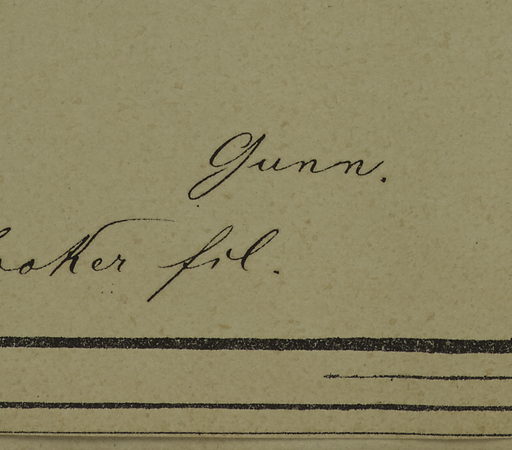 Gunn.
ooker fil.